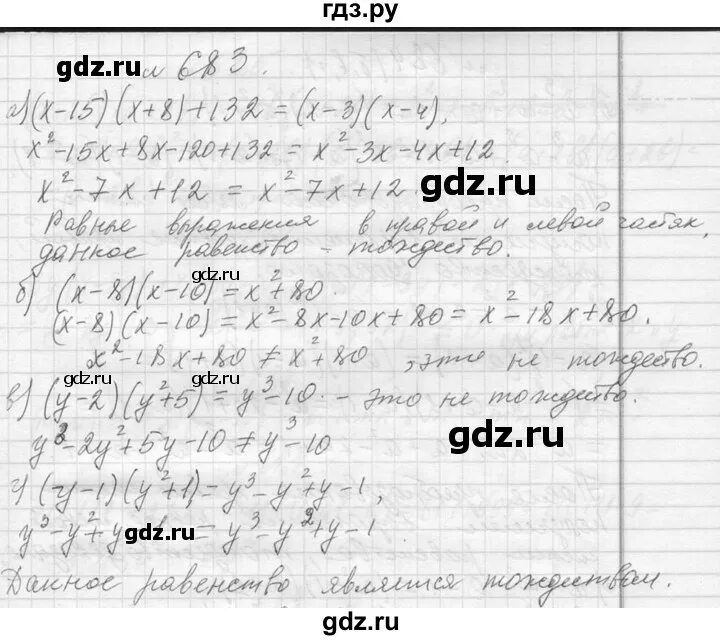 гдз.ру
gdz.ru № 683.
а) (x-15)(x+8)+132 = (x-3)(x-4),
x²-15x+8x-120+132 = x²-3x-4x+12.
x²-7x+12 = x²-7x+12.
gdz.ru
Равные выражения в правой и левой частях,
данное равенство - тождество.
gdz.ru
б) (x-8)(x-10) = x²+80.
(x-8)(x-10) = x²-8x-10x+80 = x²-18x+80.
x²-18x+80 ≠ x²+80, это не тождество.
gdz.ru gdz.ru
в) (y-2)(y²+5) = y³-10. - это не тождество.
y³-2y²+5y-10 ≠ y³-10
gdz.ru
г) (y-1)(y²+1) = y³-y²+y-1,
y³-y²+y = y³-y²+y-1
gdz.ru
Данное равенство является тождеством.
gdz.ru